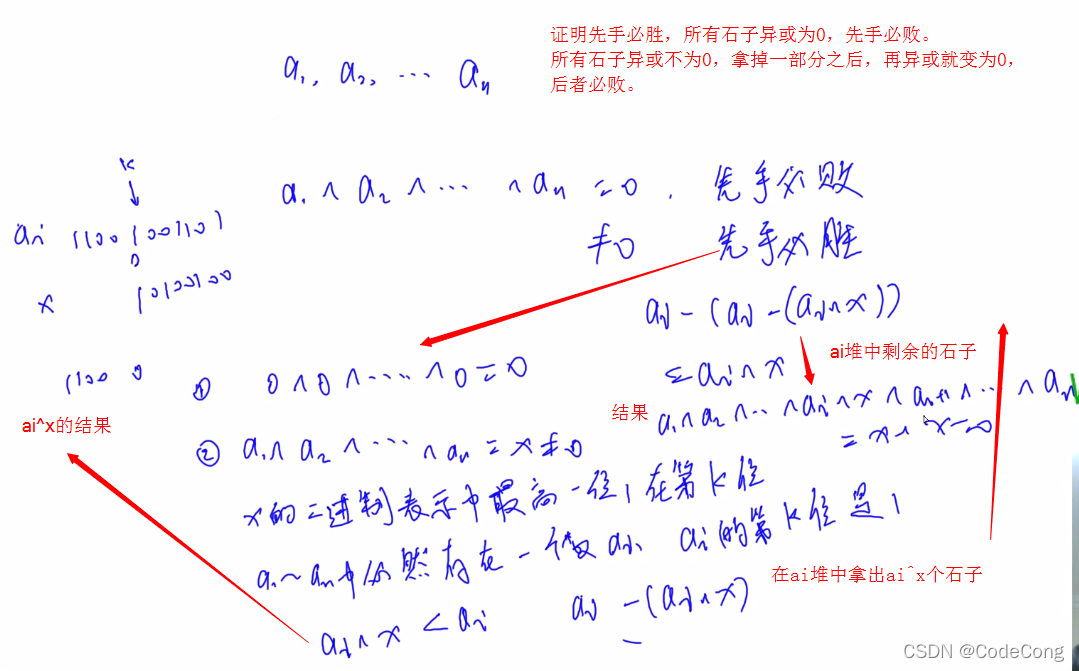 证明先手必胜，所有石子异或为0，先手必败。
所有石子异或不为0，拿掉一部分之后，再异或就变为0，
后者必败。
a₁, a₂, ⋯ aₙ
k
a₁ ∧ a₂ ∧ ⋯ ∧ aₙ = 0, 先手必败
ai 11001001101
0
≠0 先手必胜
x 10100100
ai - (ai - (ai∧x))
ai堆中剩余的石子
1100 0
① 0 ∧ 0 ∧ ⋯ ∧ 0 = 0
= ai ∧ x
ai^x的结果
结果
a₁∧a₂∧⋯∧ai∧x∧ai+1∧⋯∧aₙ
= x∧x=0
② a₁∧a₂∧⋯∧aₙ = x≠0
x的二进制表示中最高一位1在第k位
a₁~aₙ中必然存在一个数ai, ai的第k位是1
在ai堆中拿出ai^x个石子
ai∧x < ai
ai -(ai∧x)
CSDN @CodeCong